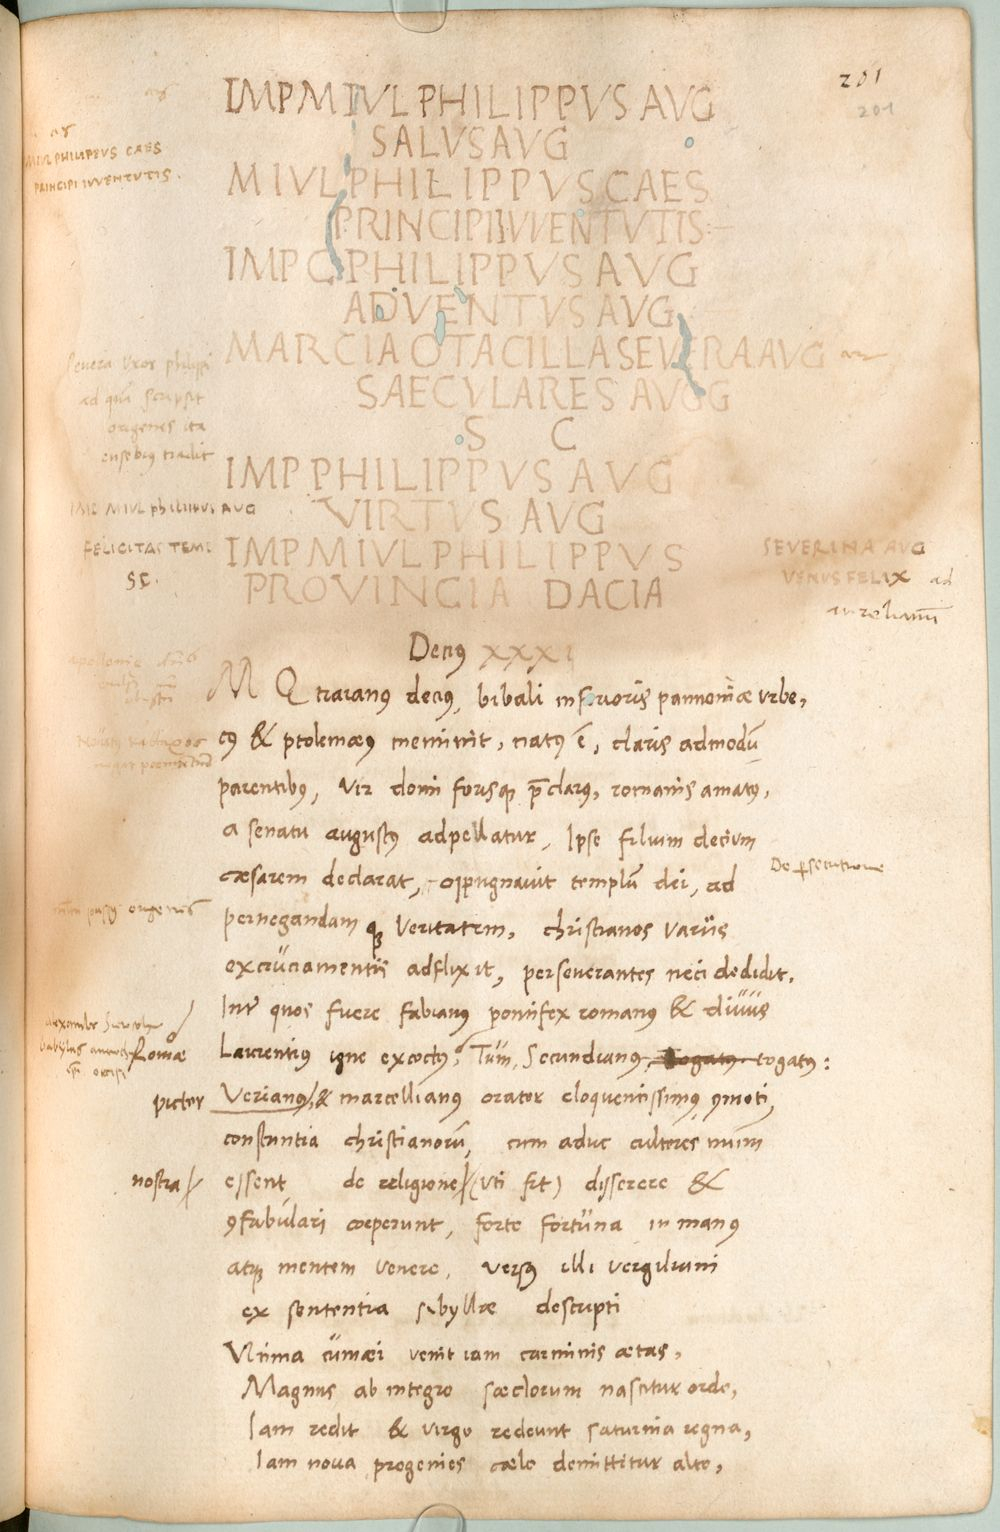 201
201
IMP M IVL PHILIPPVS AVG
SALVS AVG
M IVL PHILIPPVS CAES
PRINCIPI IVVENTVTIS
IMP C PHILIPPVS AVG
ADVENTVS AVG
MARCIA OTACILLA SEVERA AVG
SAECVLARES AVGG
S C
IMP PHILIPPVS AVG
VIRTVS AVG
IMP M IVL PHILIPPVS
PROVINCIA DACIA
M IVL PHILIPPVS CAES
PRINCIPI IVVENTVTIS.
Severa Uxor philipi
ad quā scripsit
origenes ita
eusebiꝰ tradit
IMP M IVL philippus AUG
FELICITAS TEMP
SC.
SEVERINA AVG
VENUS FELIX ad
aurelianū
Deciꝰ XXXI
M Q traianus deciꝰ, bibali inferioris pannoniæ vrbe,
cꝰ & ptolemæꝰ meminit, natꝰ ē, claris admodū
parentibꝰ, Vir domi forisqꝫ p̄clarꝰ, romanis amatꝰ,
a senatu augustꝰ adpellatur, Ipse filium decium
cæsarem declarat, oppugnauit templū dei, ad
pernegandam qꝫ Veritatem, christianos varijs
excruciamentis adflixit, perseuerantes neci dedidit.
De ꝑsecutione
origenis
Inter quos fuere fabianꝰ pontifex romanꝰ & diuus
Laurentius igne excoctꝰ, Tum, Secundianꝰ, togatꝰ togatꝰ:
Romæ
picter
Verianꝰ, & marcellianꝰ orator eloquentissimꝰ ꝯmoti
constantia christianorū, cum aduc cultores num̄
nostra
essent, de religione (vti fit) disserere &
ꝯfabulari cœperunt, forte fortuna in manꝰ
atqꝫ mentem venere, versꝰ illi vergiliani
ex sententia sibyllæ descripti
Vltima cumæi venit iam carminis ætas,
Magnus ab integro sæclorum nascitur ordo,
Iam redit & virgo redeunt saturnia regna,
Iam noua progenies cælo demittitur alto,